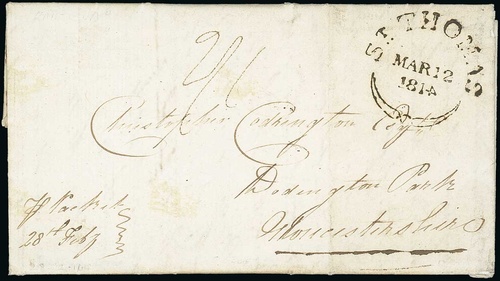 ST THOMAS
MAR 12
1814
2/1
Christopher Codrington Esqr
Dodington Park
Gloucestershire
Pr Packet
28th Feby